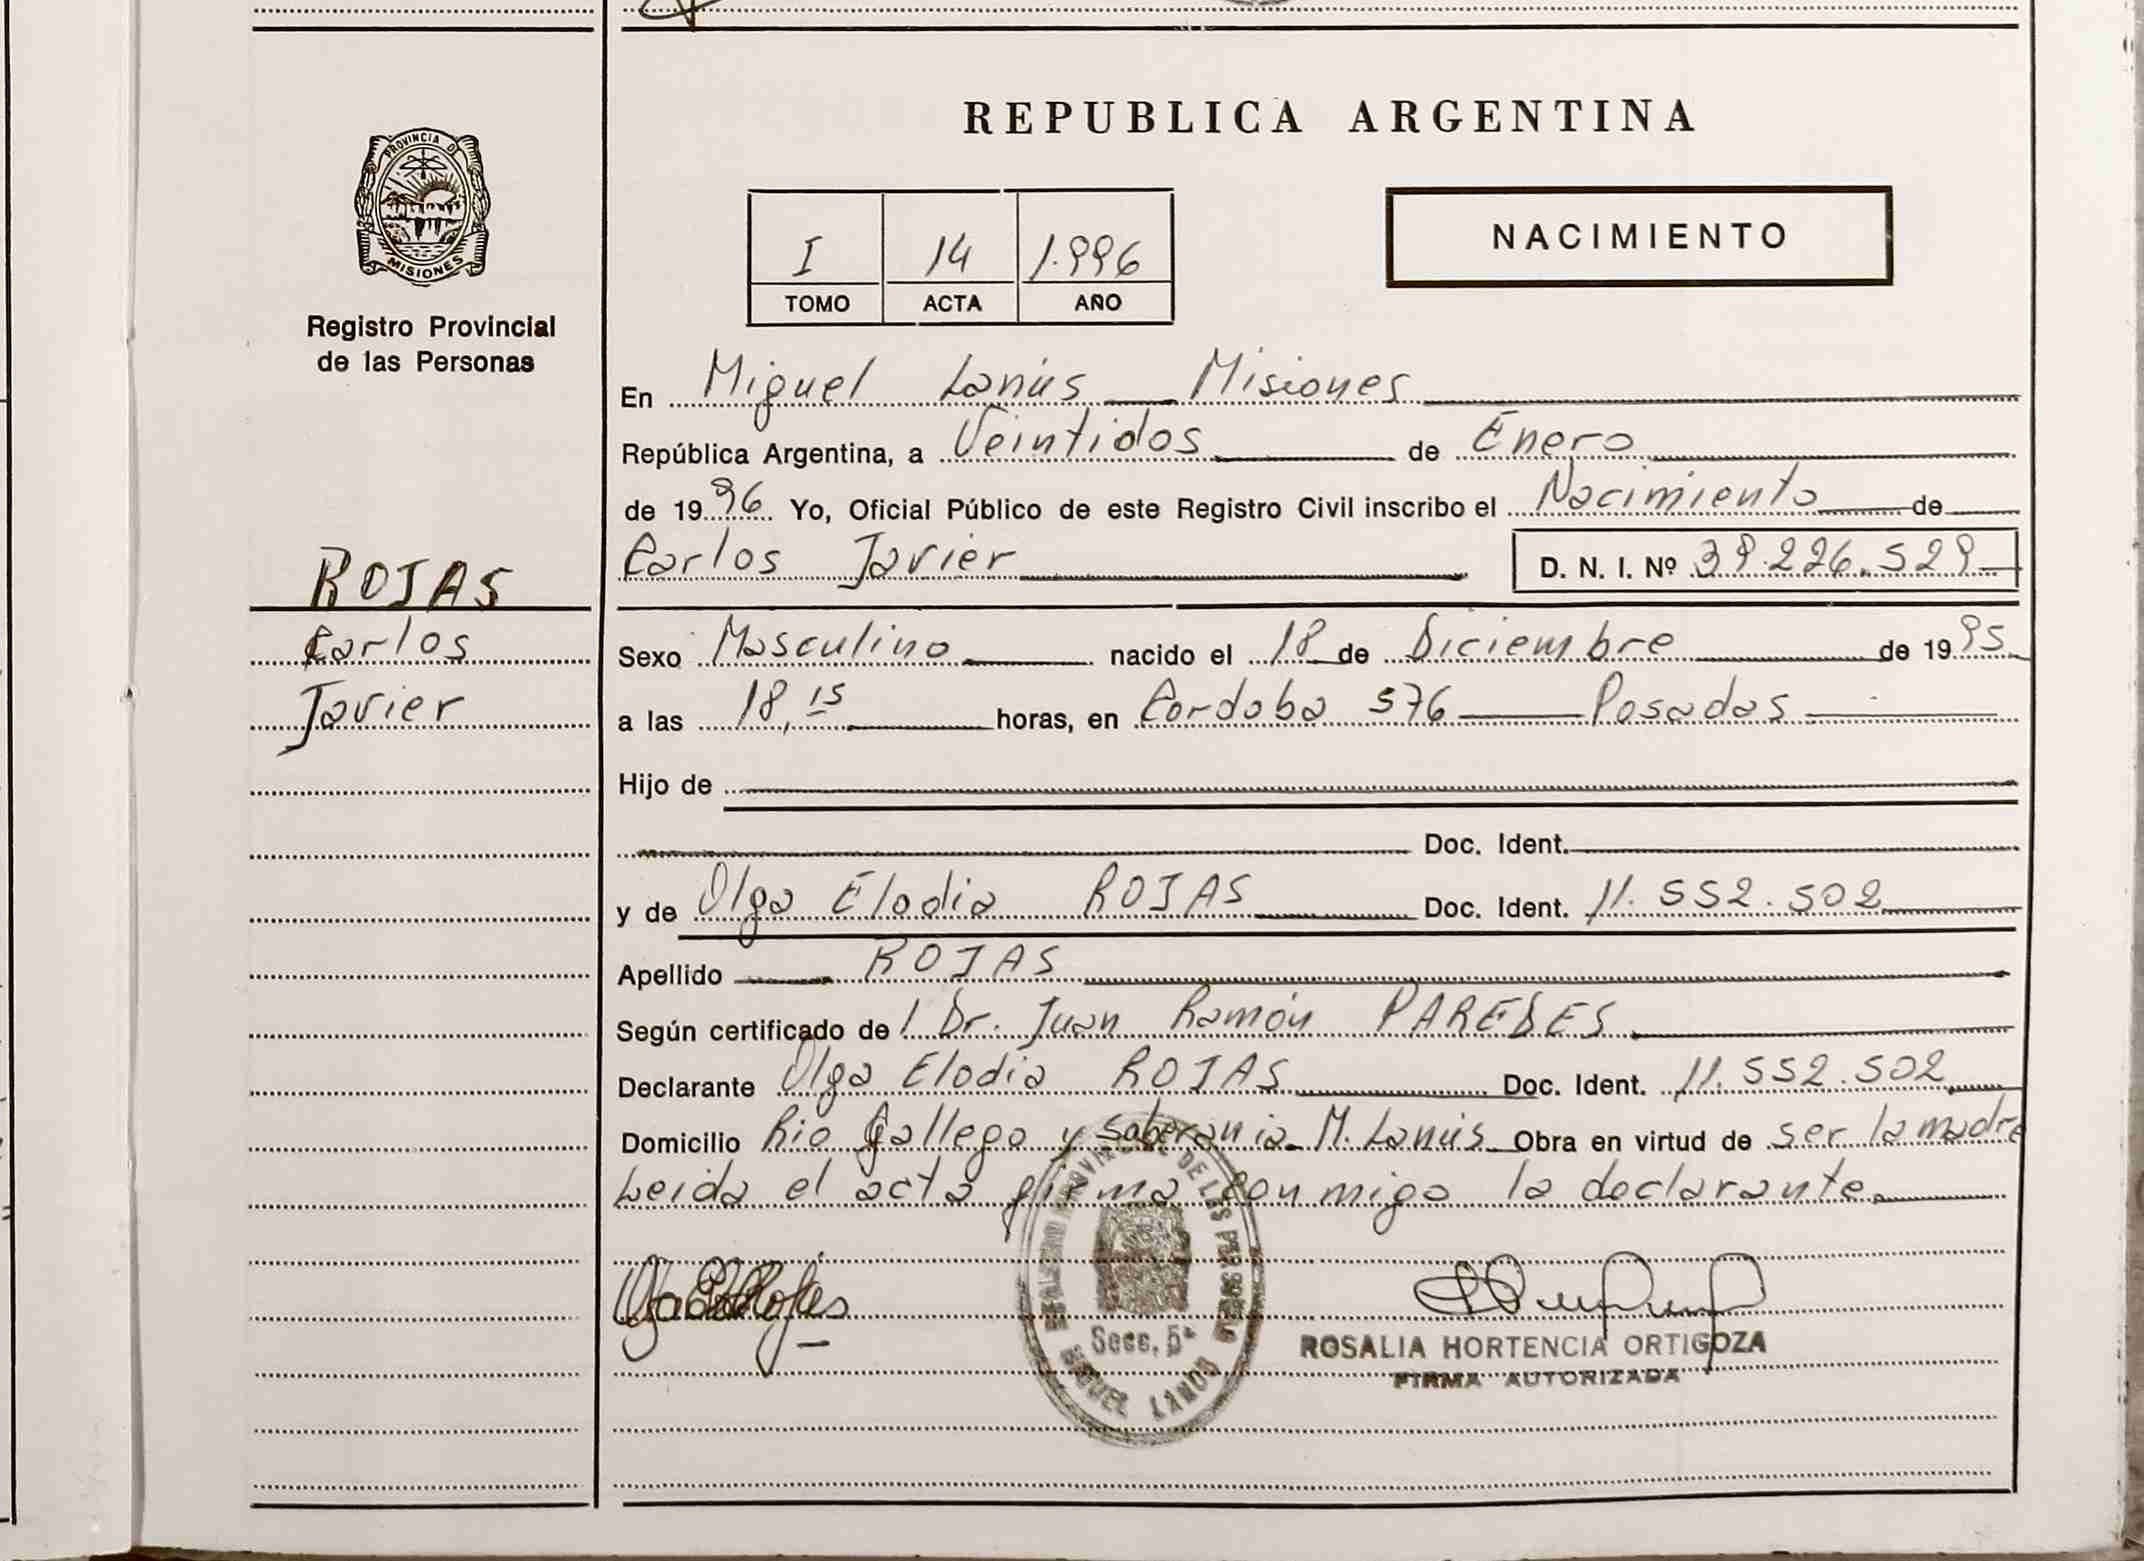 PROVINCIA DE
MISIONES
Registro Provincial
de las Personas
ROJAS
Carlos
Javier
REPUBLICA ARGENTINA
I 14 1.996
TOMO ACTA AÑO
NACIMIENTO
En Miguel Lanús Misiones
República Argentina, a Veintidos de Enero
de 1996 Yo, Oficial Público de este Registro Civil inscribo el Nacimiento de
Carlos Javier D. N. I. Nº 39.226.529
Sexo Masculino nacido el 18 de Diciembre de 1995
a las 18,15 horas, en Cordoba 576 Posadas
Hijo de
Doc. Ident.
y de Olga Elodia ROJAS Doc. Ident. 11.552.502
Apellido ROJAS
Según certificado de l Dr. Juan Ramón PAREDES
Declarante Olga Elodia ROJAS Doc. Ident. 11.552.502
Domicilio Rio Gallego y soberania M. Lanús Obra en virtud de ser la madre
Leida el acta firma conmigo la declarante
Secc. 5ª
ROSALIA HORTENCIA ORTIGOZA
FIRMA AUTORIZADA